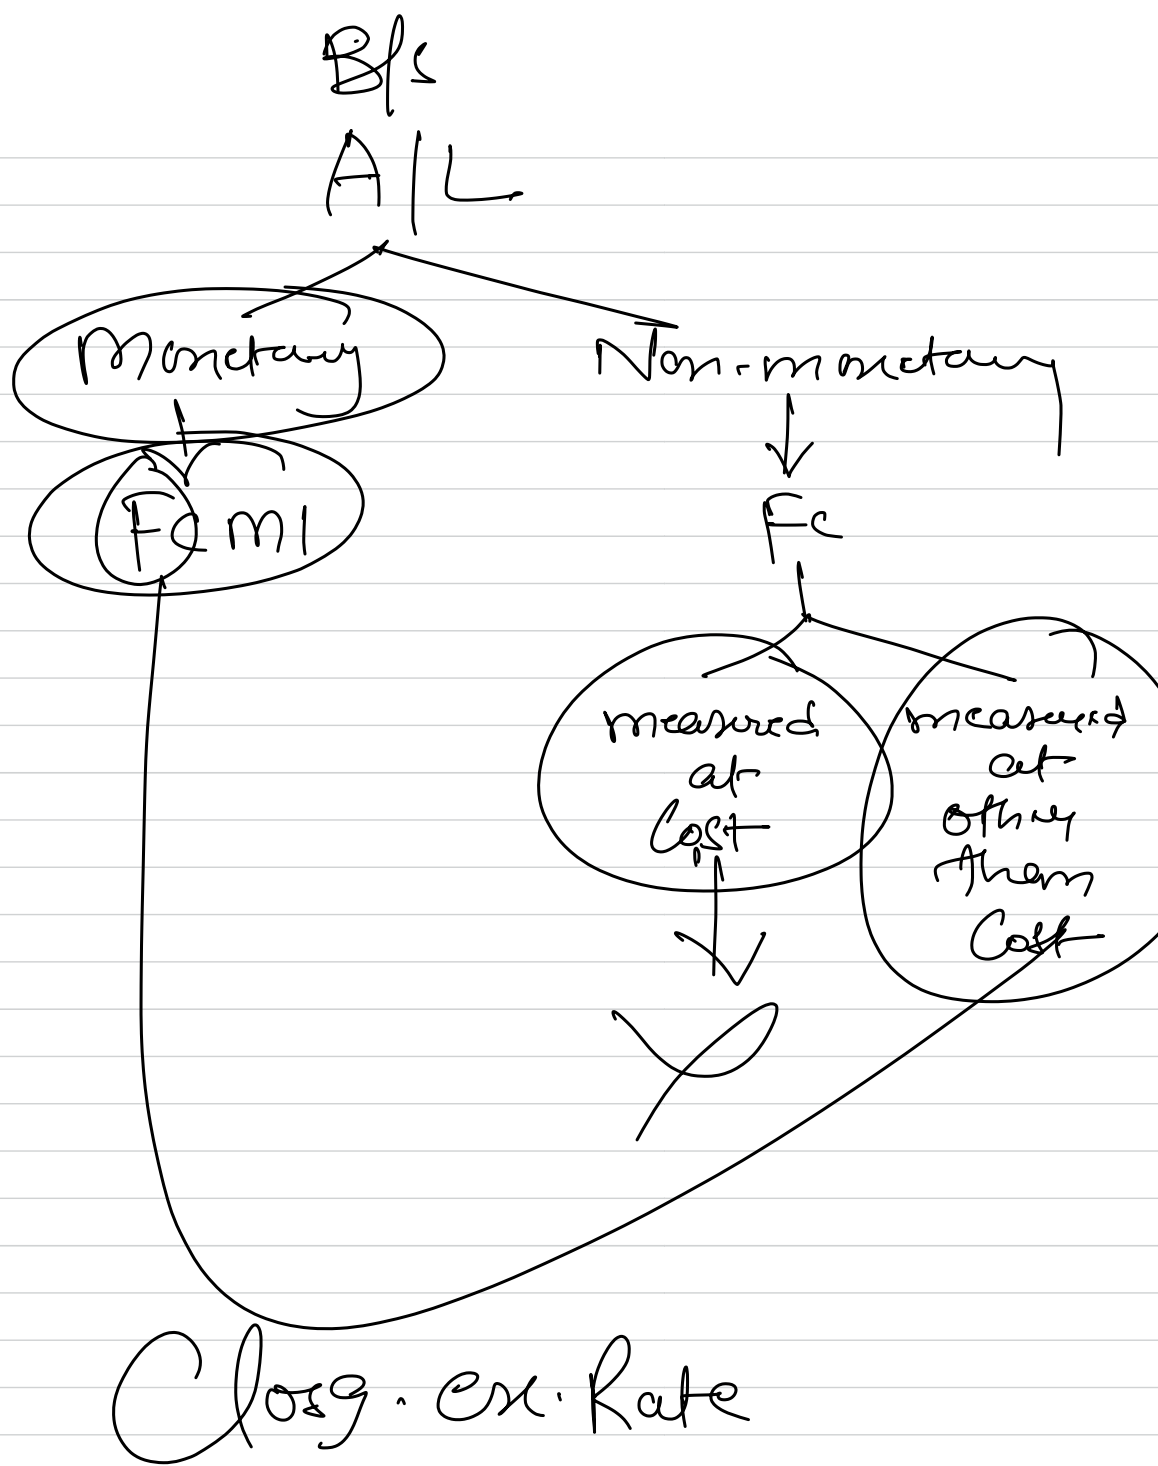 B/s
A/L
Monetary
Non-monetary
FCMI
Fc
measured
at
Cost
measured
at
other
than
Cost
Closg. ex. Rate